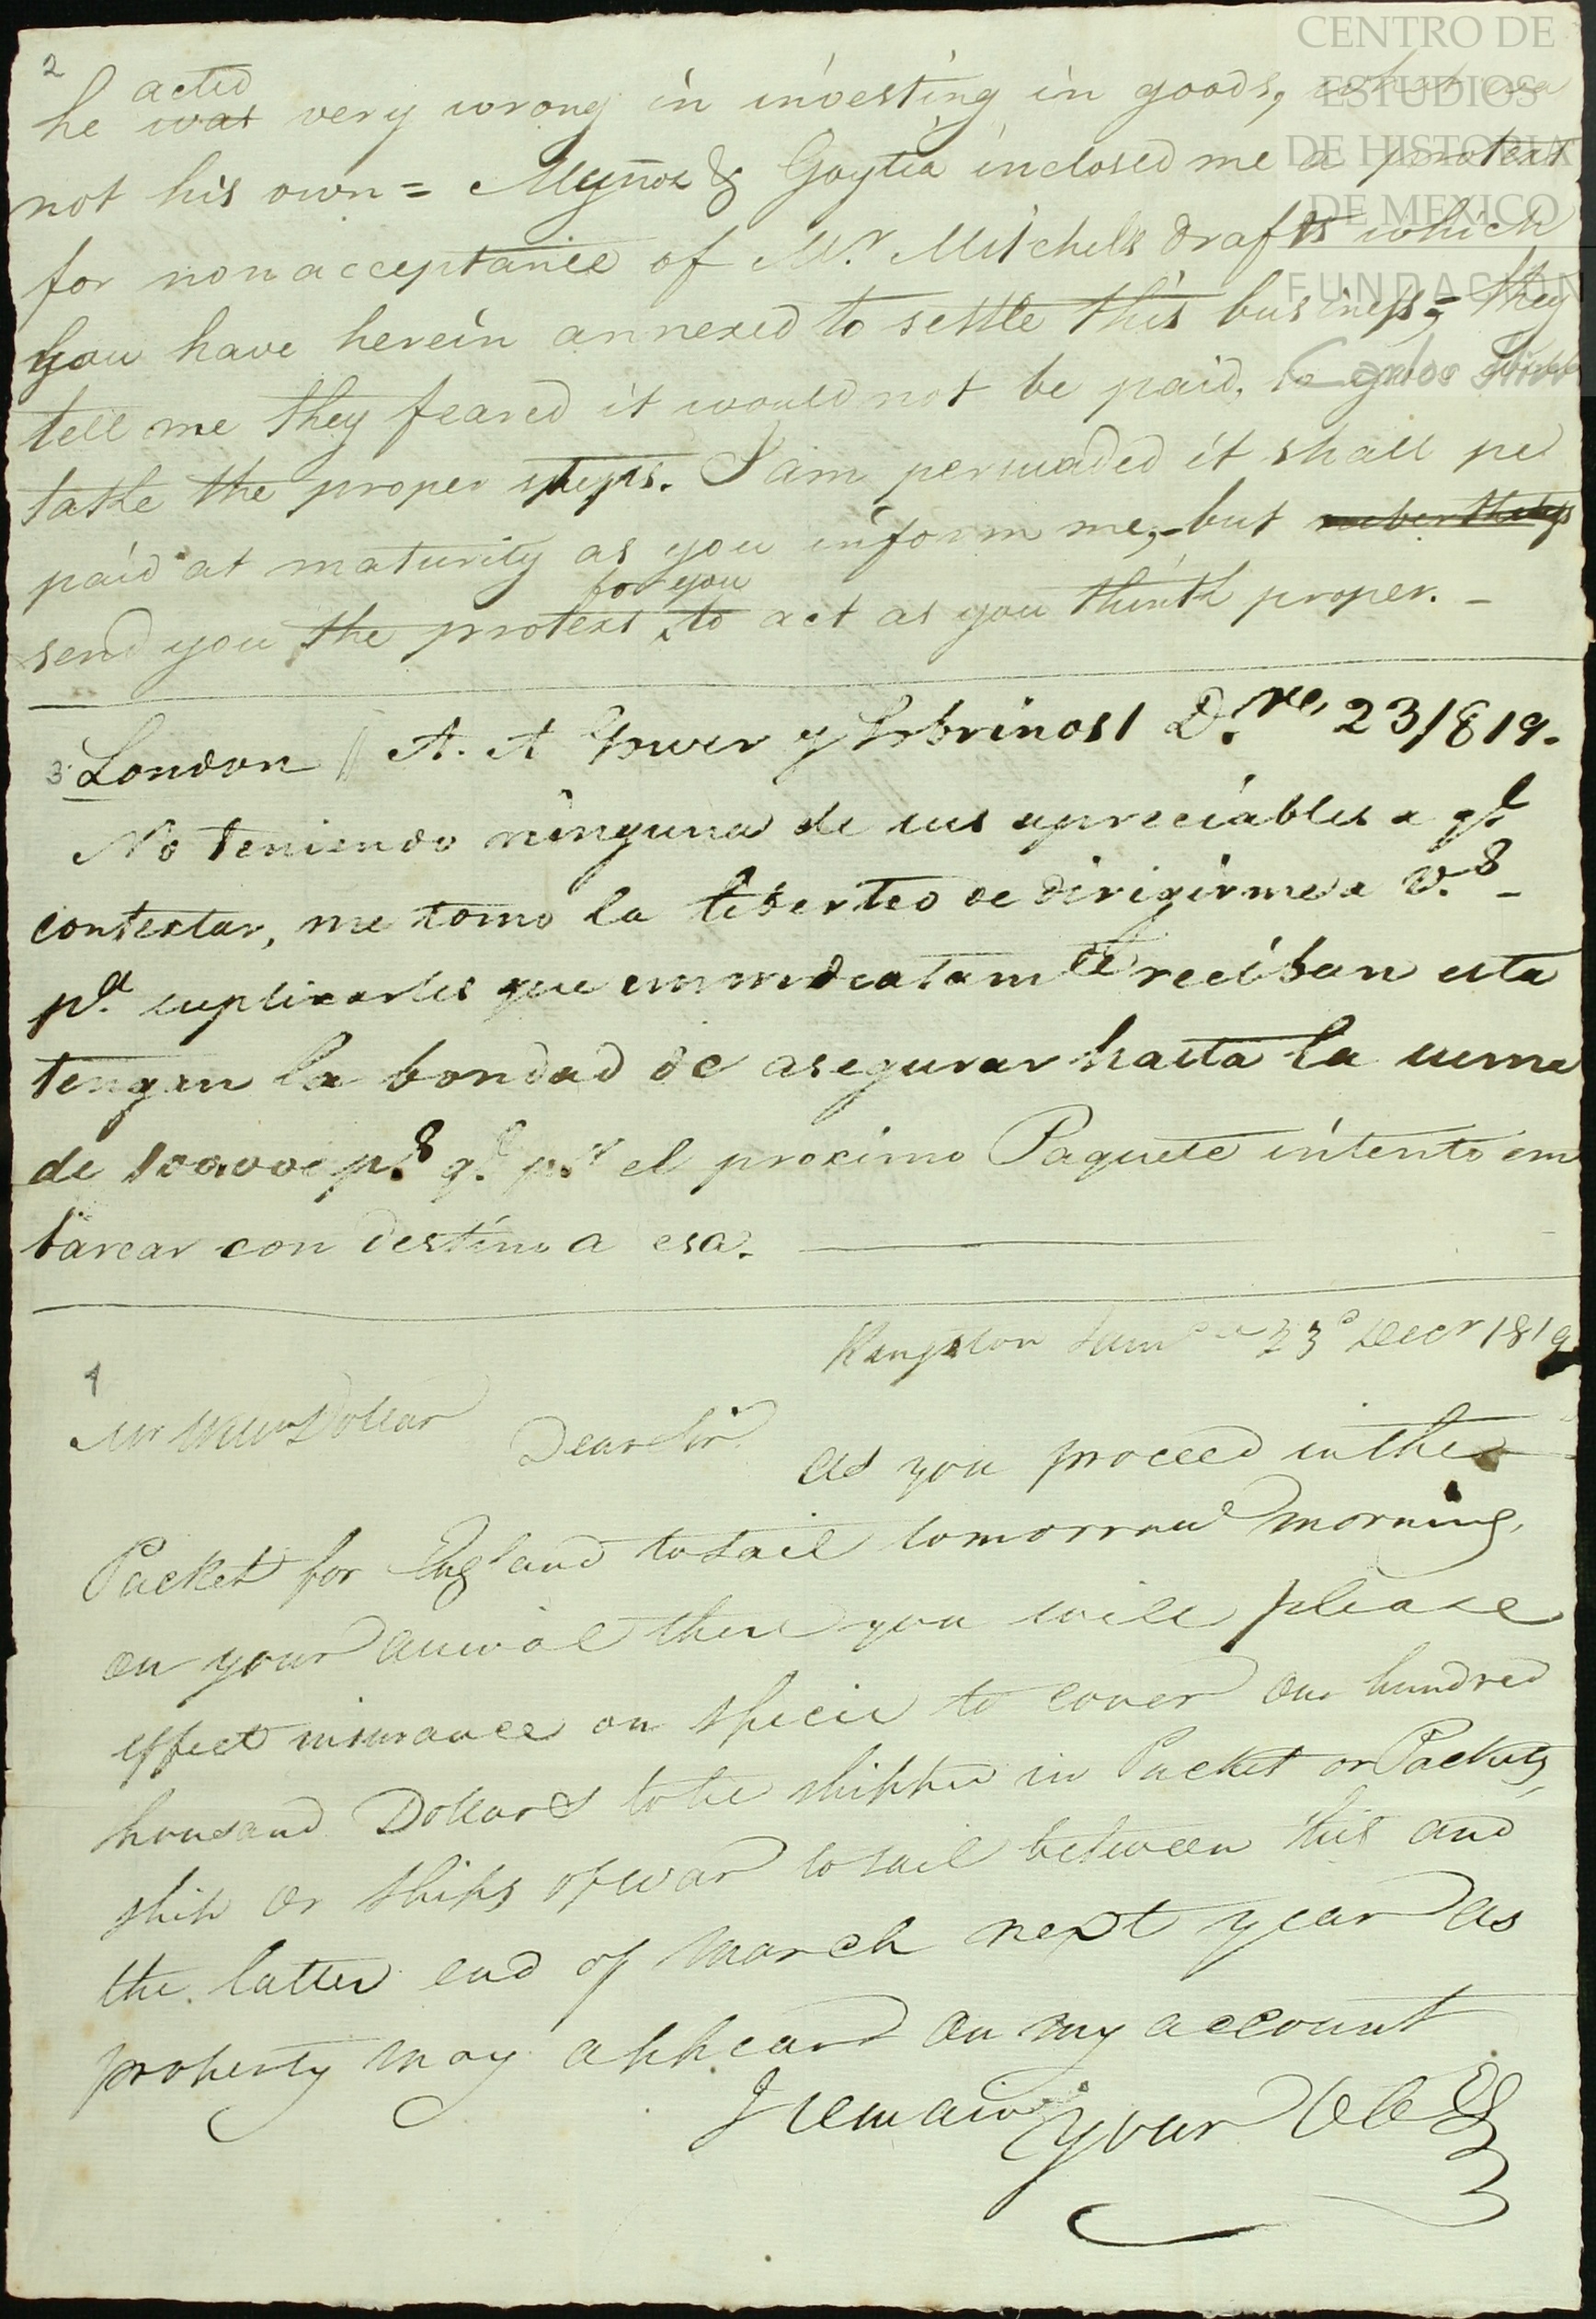 CENTRO DE
ESTUDIOS
DE HISTORIA
DE MEXICO
FUNDACIÓN
2
acted
he was very wrong in investing in goods, what wa
not his own = Muñoz & Goytia inclosed me a protest
for non acceptance of Mr. Mitchels drafts which
you have herein annexed to settle this business, = they
tell me they feared it would not be paid, to you
take the proper steps. I am persuaded it shall pe
paid at maturity as you inform me, - but
for you
send you the protest to act as you think proper. -
3. London // A. A y Sobrinos / D.re 23/819.
No teniendo ninguna de sus apreciables a q.l
contextar, me tomo la liberted de dirigirme a V.s -
p.a suplicarles que immediatam.te reciban esta
tengan la bondad de asegurar hasta la suma
de 100.000 p.s q.e p.r el proximo Paquete intento em
barcar con destino a esa.
Kingston Jam.ca 23d Decr 1819
4
Mr Willm Dollar
Dear Sir.
As you proceed in the
Packet for England to sail tomorrow morning,
on your arrival there you will please
effect insurance on specie to cover one hundred
thousand Dollars to be shipped in Packet or Packets,
ship or ships of war to sail between this and
the latter end of March next year as
property may appear on my account
I remain your